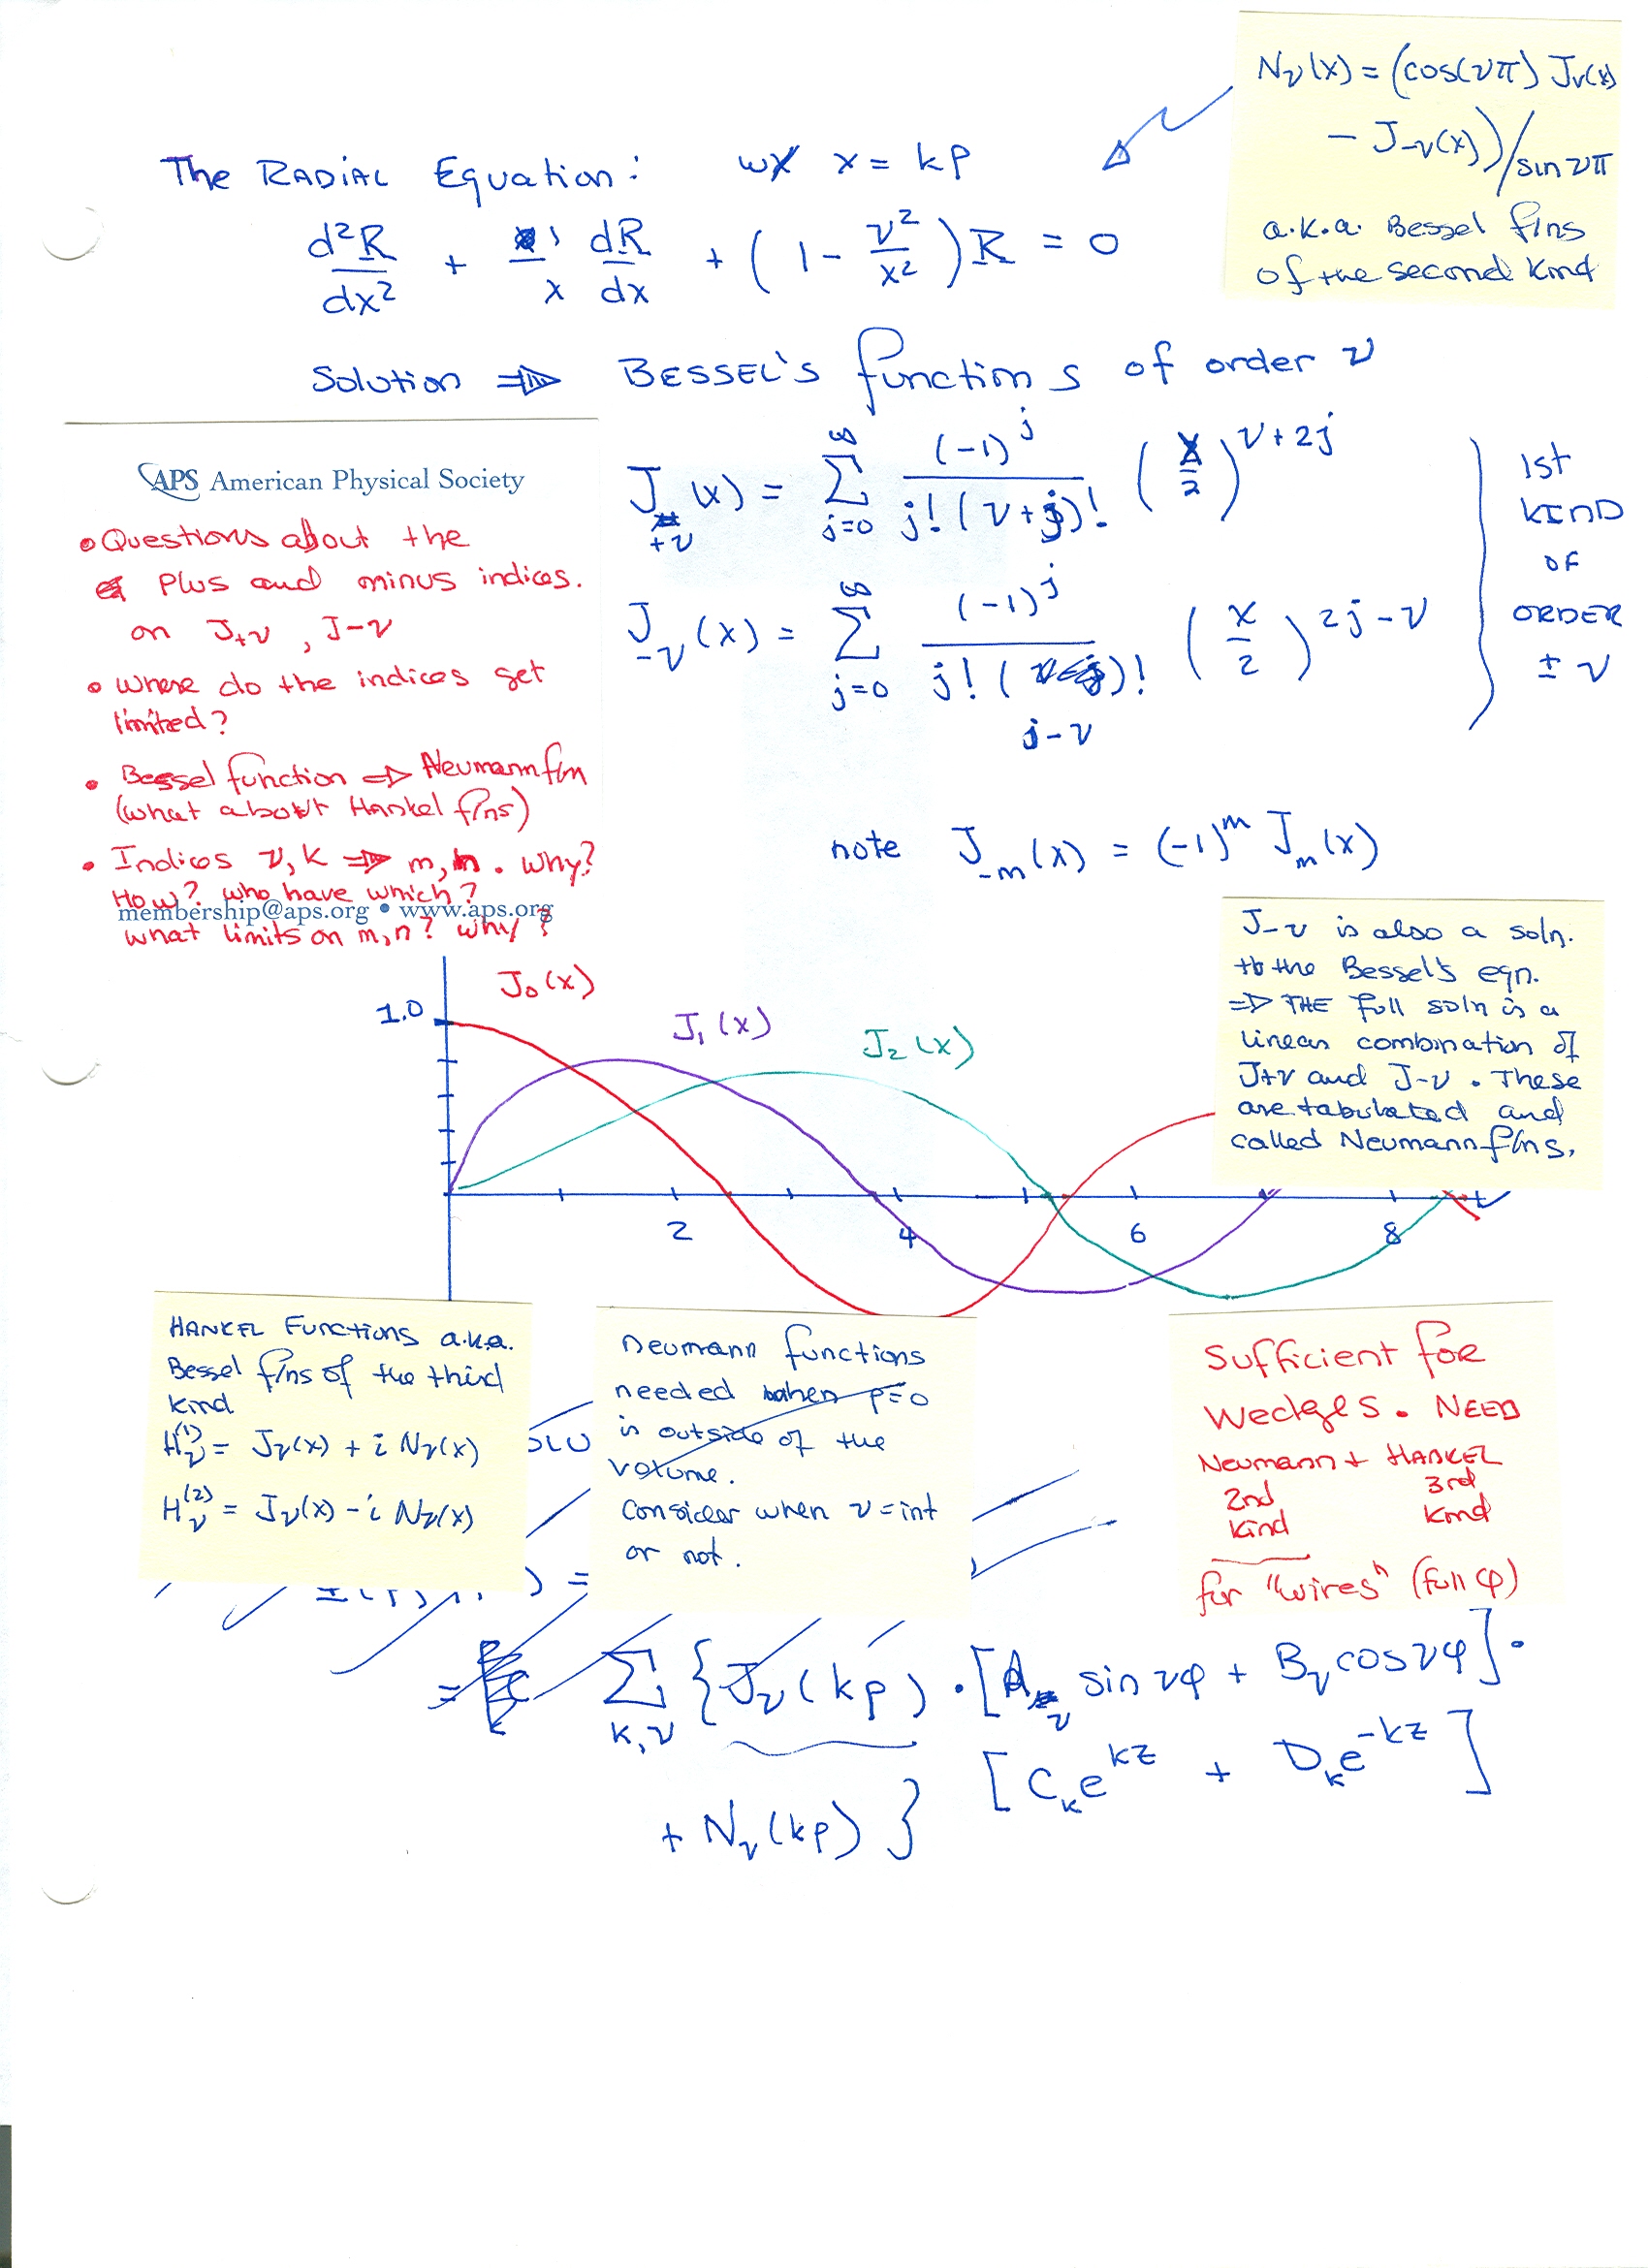 N_ν(x) = (cos(νπ) J_ν(x)
- J_-ν(x)) / sin νπ
a.k.a. Bessel f/ns
of the second Kind
The RADIAL Equation: w/ x = kρ
d²R/dx² + 1/x dR/dx + (1 - ν²/x²) R = 0
Solution ⇒ BESSEL'S functions of order ν
J_+ν (x) = ∑_{j=0}^{∞} (-1)^j / j!(ν+j)! (x/2)^{ν+2j}
J_-ν (x) = ∑_{j=0}^{∞} (-1)^j / j!(j-ν)! (x/2)^{2j-ν}
1st
KIND
OF
ORDER
± ν
APS American Physical Society
• Questions about the
Plus and minus indices.
on J+ν, J-ν
• Where do the indices get
limited?
• Bessel function ⇒ Neumann f/n
(what about Hankel f/ns)
• Indices ν, k ⇒ m, n. Why?
How? who have which?
membership@aps.org • www.aps.org
what limits on m, n? why?
note J_-m(x) = (-1)^m J_m(x)
J-ν is also a soln.
to the Bessel's eqn.
⇒ THE full soln is a
linear combination of
J+ν and J-ν. These
are tabulated and
called Neumann f/ns.
J_0(x)
J_1(x)
J_2(x)
1.0
2 4 6 8
HANKEL Functions a.k.a.
Bessel f/ns of the third
Kind
H_ν^(1) = J_ν(x) + i N_ν(x)
H_ν^(2) = J_ν(x) - i N_ν(x)
Neumann functions
needed when ρ=0
is outside of the
volume.
Consider when ν = int
or not.
Sufficient for
Wedges. NEED
Neumann + HANKEL
2nd 3rd
Kind Kind
for "wires" (full φ)
) =
= ∑_{k,ν} {J_ν(kρ) · [A_ν sin νφ + B_ν cos νφ] ·
+ N_ν(kρ)} [C_k e^{kz} + D_k e^{-kz}]